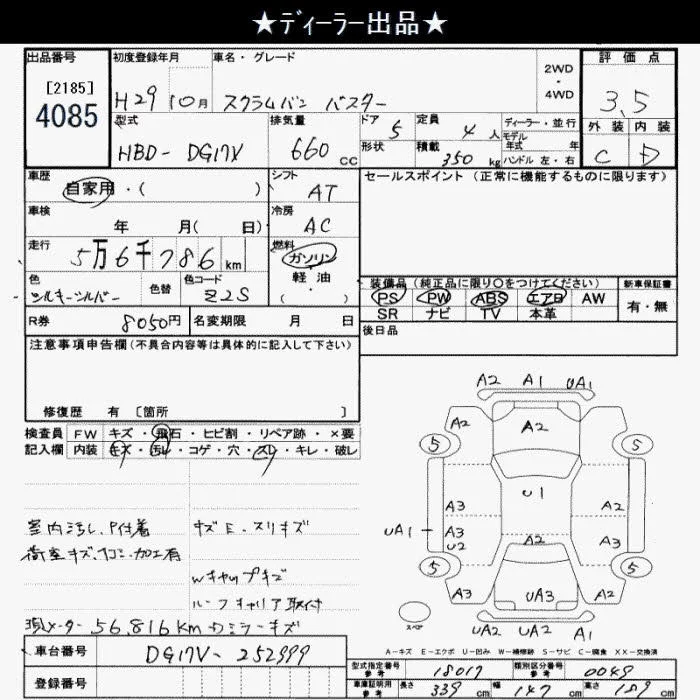 ★ディーラー出品★
出品番号 初度登録年月 車名・グレード 2WD ・ 4WD 評価点
[2185]
4085
H29 10月 スクラムバン バスター 3.5
型式 排気量 ドア 定員 ディーラー・並行 外装 内装
HBD-DG17V 660 CC 5 4人 モデル年式 年 C D
形状 積載 350 kg ハンドル 左・右
車歴 自家用・( ) シフト AT セールスポイント(正常に機能するものに限ります)
車検 年 月( 日) 冷房 AC
走行 5万6千786 km 燃料 ガソリン
軽・油
( )
色 シルキーシルバー 色替 色コード Z2S
装備品(純正品に限り〇をつけてください) 新車保証書
PS PW ABS エアB AW 有・無
SR ナビ TV 本革
R券 8050円 名変期限 月 日 後日品
注意事項申告欄(不具合内容等は具体的に記入して下さい)
修復歴 有 [箇所 ]
検査員 FW キズ・飛石・ヒビ割・リペア跡・×要
記入欄 内装 キズ・汚レ・コゲ・穴・スレ・キレ・破レ
A2 A1 UA1
A2 A2
5 5
U1
A3 A2
UA1 A3 A3
U2 A2
5 5
A3 UA3 A2
スペア UA2 UA2 A1
室内汚レ、P付着 キズE・スリキズ
荷室キズ、凹コミ、加工有
Wキャップキズ
ルーフキャリア取付
現メーター56,816Km ミラーキズ
A-キズ E-エクボ U-凹み W-補修跡 S-サビ C-腐食 XX-交換済
車台番号 DG17V-252999
登録番号
型式指定番号 参考 18017 類別区分番号 参考 0049
車庫証明用 参考 長さ 339 cm 幅 147 cm 高さ 189 cm